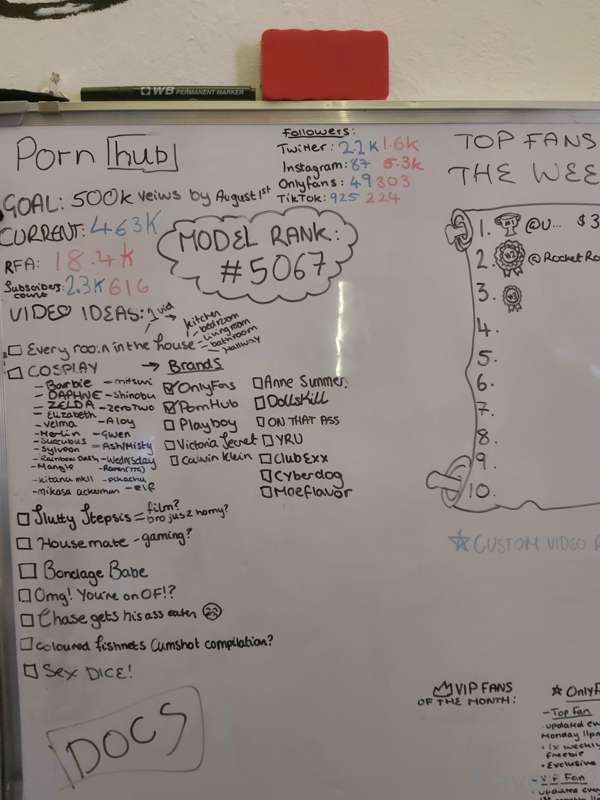 WB PERMANENT MARKER
Porn hub
GOAL: 500k veiws by August 1st
CURRENT: 463K
RFA: 18.4k
Subscribers count: 2.3K 616
Followers:
Twitter: 2.2k 1.6k
Instagram: 87 5.3k
Onlyfans: 49 303
TikTok: 925 224
MODEL RANK:
#5067
TOP FANS
THE WEE
1. #1 @U... $3
2. #2 @RocketRo
3. #3
4.
5.
6.
7.
8.
9.
10.
VIDEO IDEAS:
1 vid
kitchen
- bedroom
- living room
- bathroom
- Hallway
Every room in the house
COSPLAY
- Barbie
- DAPHNE
- ZELDA
- Elizabeth
- Velma
- Merlin
- Succubus
- Sylveon
- Rainbow Dash
- Mangle
- kitana mk11
- mikasa ackerman
- mitsuri
- Shinobu
- Zero Two
- Aloy
- Gwen
- Ash/Misty
- Wednesday
- Raven (TTG)
- pikachu
- elf
→ Brands
OnlyFans
PornHub
Playboy
Victoria Secret
Calvin Klein
Anne Summer.
Dollskill
ON THAT ASS
YRU
ClubExx
Cyberdog
Moeflavor
Slutty Stepsis = film?
bro jus 2 horny?
Housemate - gaming?
Bondage Babe
Omg! You're on OF!?
Chase gets his ass eaten
Coloured fishnets Cumshot compilation?
Sex DICE!
DOCS
CUSTOM VIDEO R
VIP FANS
OF THE MONTH:
OnlyF
- Top Fan
updated eve
Monday 11pm
• 1x weekly
freebie
• Exclusive
- VIP Fan
updated eve